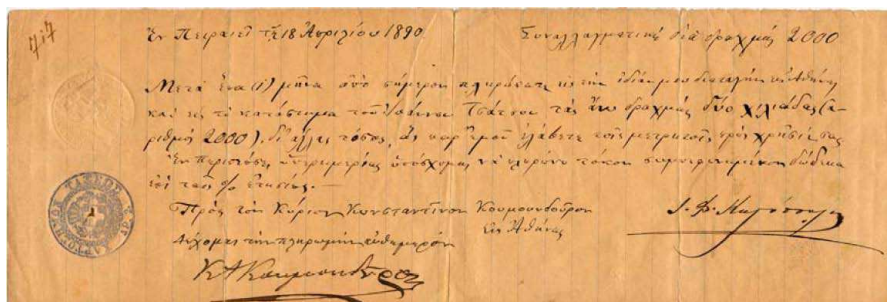 717
Ἐν Πειραιεῖ τῇ 18 Ἀπριλίου 1890 Συναλλαγματικὴ διὰ δραχμάς 2000
Μετὰ ἕνα (1) μῆνα ἀπὸ σήμερον πληρώσατε εἰς τὴν ἰδίαν μου διαταγὴν
καὶ εἰς τὸ κατάστημα τοῦ Ἰωάννου Τσάτσου τὰς ἄνω δραχμάς δύο χιλιάδας (ἀ-
ριθμὸς 2000), δι' ἄλλας τόσας, ἃς παρ' ἐμοῦ ἐλάβετε τοῖς μετρητοῖς πρὸς χρῆσίν σας
Ἐν περιπτώσει ὑπερημερίας ὑπόσχομαι νὰ πληρώνω τόκον συμπεφωνημένον δώδεκα
ἐπὶ τοῖς % ἐτησίως.—
Πρὸς τὸν Κύριον Κωνσταντῖνον Κουμουνδοῦρον
Εἰς Ἀθήνας
Δέχομαι τὴν πληρωμὴν αὐθημερόν